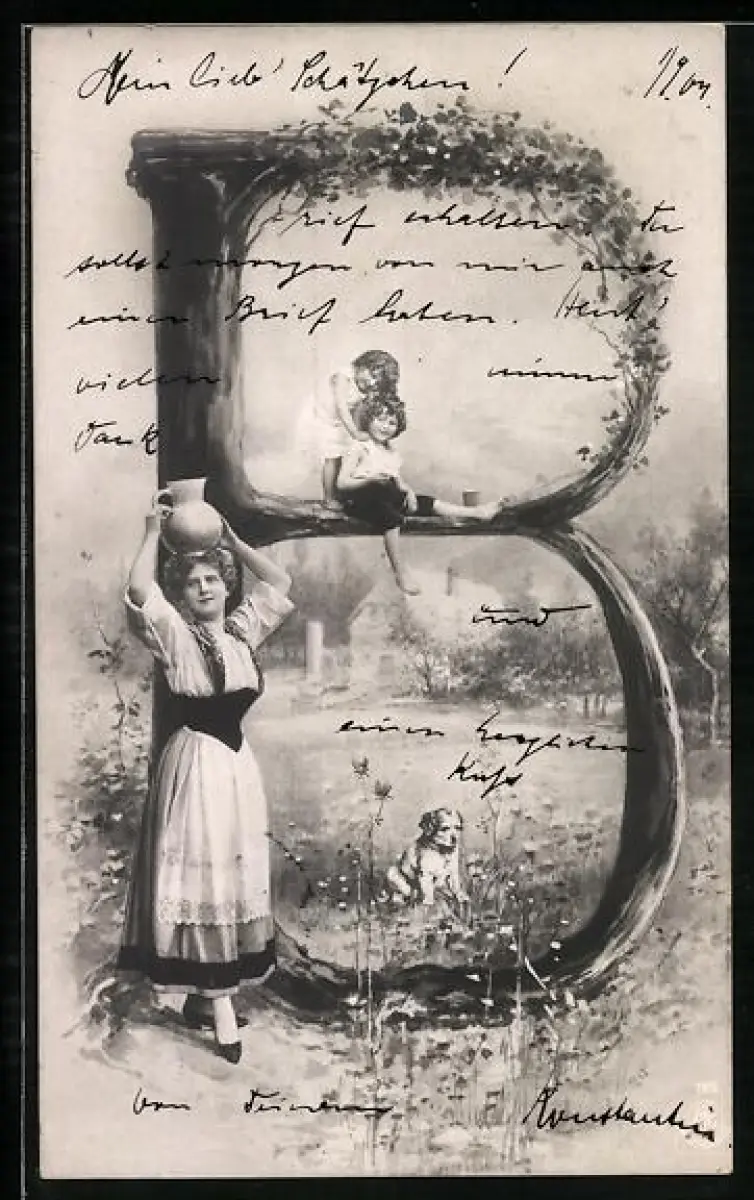 Mein lieb' Schätzchen! 1/9.04.
B
rief erhalten. Du
sollst morgen von mir auch
einen Brief haben. Heut'
vielen nimm
Dank
und
einen herzlichen
Kuß
von Deinem Konstantin